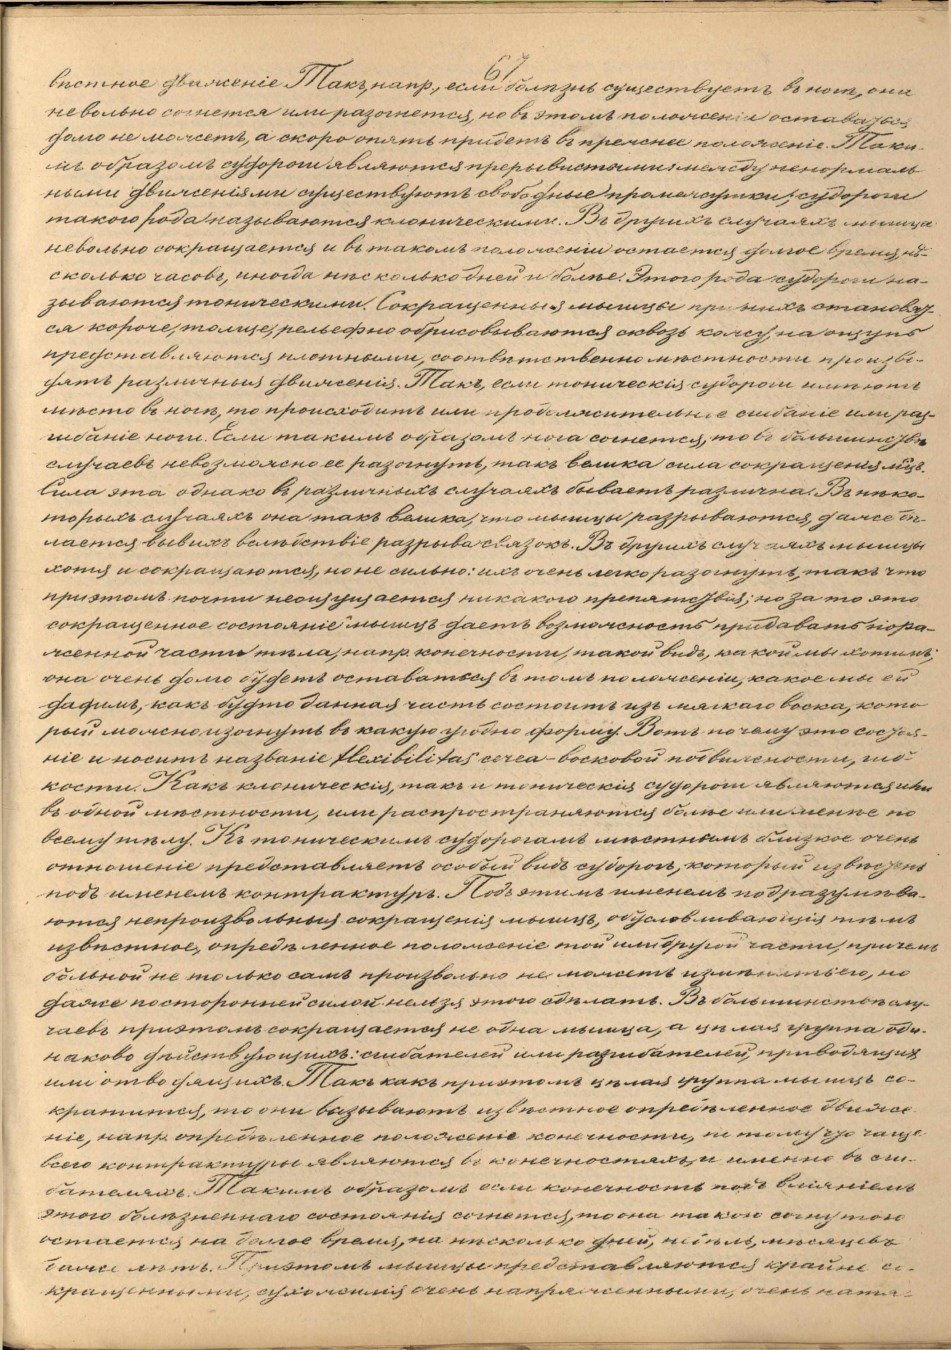 67
вѣстное движеніе. Такъ напр., если болѣзнь существуетъ въ ногѣ, она
невольно согнется или разогнется, но въ этомъ положеніи оставаться
долго не можетъ, а скоро опять придетъ въ прежнее положеніе. Таки-
мъ образомъ судороги являются прерывистыми: между ненормаль
ными движеніями существуютъ свободные промежутки; судороги
такого рода называются клоническими. Въ другихъ случаяхъ мышца
невольно сокращается и въ такомъ положеніи остается долгое время, нѣ-
сколько часовъ, иногда нѣсколько дней и болѣе. Этого рода судороги на-
зываются тоническими. Сокращенныя мышцы при нихъ становят-
ся короче, толще, рельефно обрисовываются сквозь кожу, на ощупь
представляются плотными, соотвѣтственно мѣстности произво-
дятъ различныя движенія. Такъ, если тоническія судороги имѣютъ
мѣсто въ ногѣ, то происходитъ или продолжительное сгибаніе или раз-
гибаніе ноги. Если такимъ образомъ нога согнется, то въ большинствѣ
случаевъ невозможно ее разогнуть, такъ велика сила сокращенія мцъ.
Сила эта однако въ различныхъ случаяхъ бываетъ различна. Въ нѣко-
торыхъ случаяхъ она такъ велика, что мышцы разрываются, даже дѣ-
лается вывихъ вслѣдствіе разрыва связокъ. Въ другихъ случаяхъ мышцы
хотя и сокращаются, но не сильно: ихъ очень легко разогнуть, такъ что
при этомъ почти не ощущается никакого препятствія; но за то это
сокращенное состояніе мышцъ даетъ возможность придавать пора-
женной части тѣла, напр. конечности, такой видъ, какой мы хотимъ;
она очень долго будетъ оставаться въ томъ положеніи, какое мы ей
дадимъ, какъ будто данная часть состоитъ изъ мягкаго воска, кото
рый можно изогнуть въ какую угодно форму. Вотъ почему это состоя-
ніе и носитъ названіе flexibilitas cerea – восковой подвижности, гиб-
кости. Какъ клоническія, такъ и тоническія судороги являются или
въ одной мѣстности, или распространяются болѣе или менѣе по
всему тѣлу. Къ тоническимъ судорогамъ мѣстнымъ близкое очень
отношеніе представляетъ особый видъ судорогъ, который извѣстенъ
подъ именемъ контрактуръ. Подъ этимъ именемъ подразумѣва-
ются непроизвольныя сокращенія мышцъ, обусловливающія тѣмъ
извѣстное, опредѣленное положеніе той или другой части, причемъ
больной не только самъ произвольно не можетъ измѣнить его, но
даже посторонней силой нельзя этого сдѣлать. Въ большинствѣ слу-
чаевъ приэтомъ сокращается не одна мышца, а цѣлая группа оди-
наково дѣйствующихъ: сгибателей или разгибателей, приводящихъ
или отводящихъ. Такъ какъ приэтомъ цѣлая группа мышцъ со-
кратится, то они вызываютъ извѣстное опредѣленное движе
ніе, напр. опредѣленное положеніе конечности, потому что чаще
всего контрактуры являются въ конечностяхъ и именно въ сги-
бателяхъ. Такимъ образомъ если конечность подъ вліяніемъ
этого болѣзненнаго состоянія согнется, то она такою согнутою
остается на долгое время, на нѣсколько дней, недѣль, мѣсяцевъ
даже лѣтъ. Приэтомъ мышцы представляются крайне со-
кращенными, сухожилія очень напряженными, очень натя-